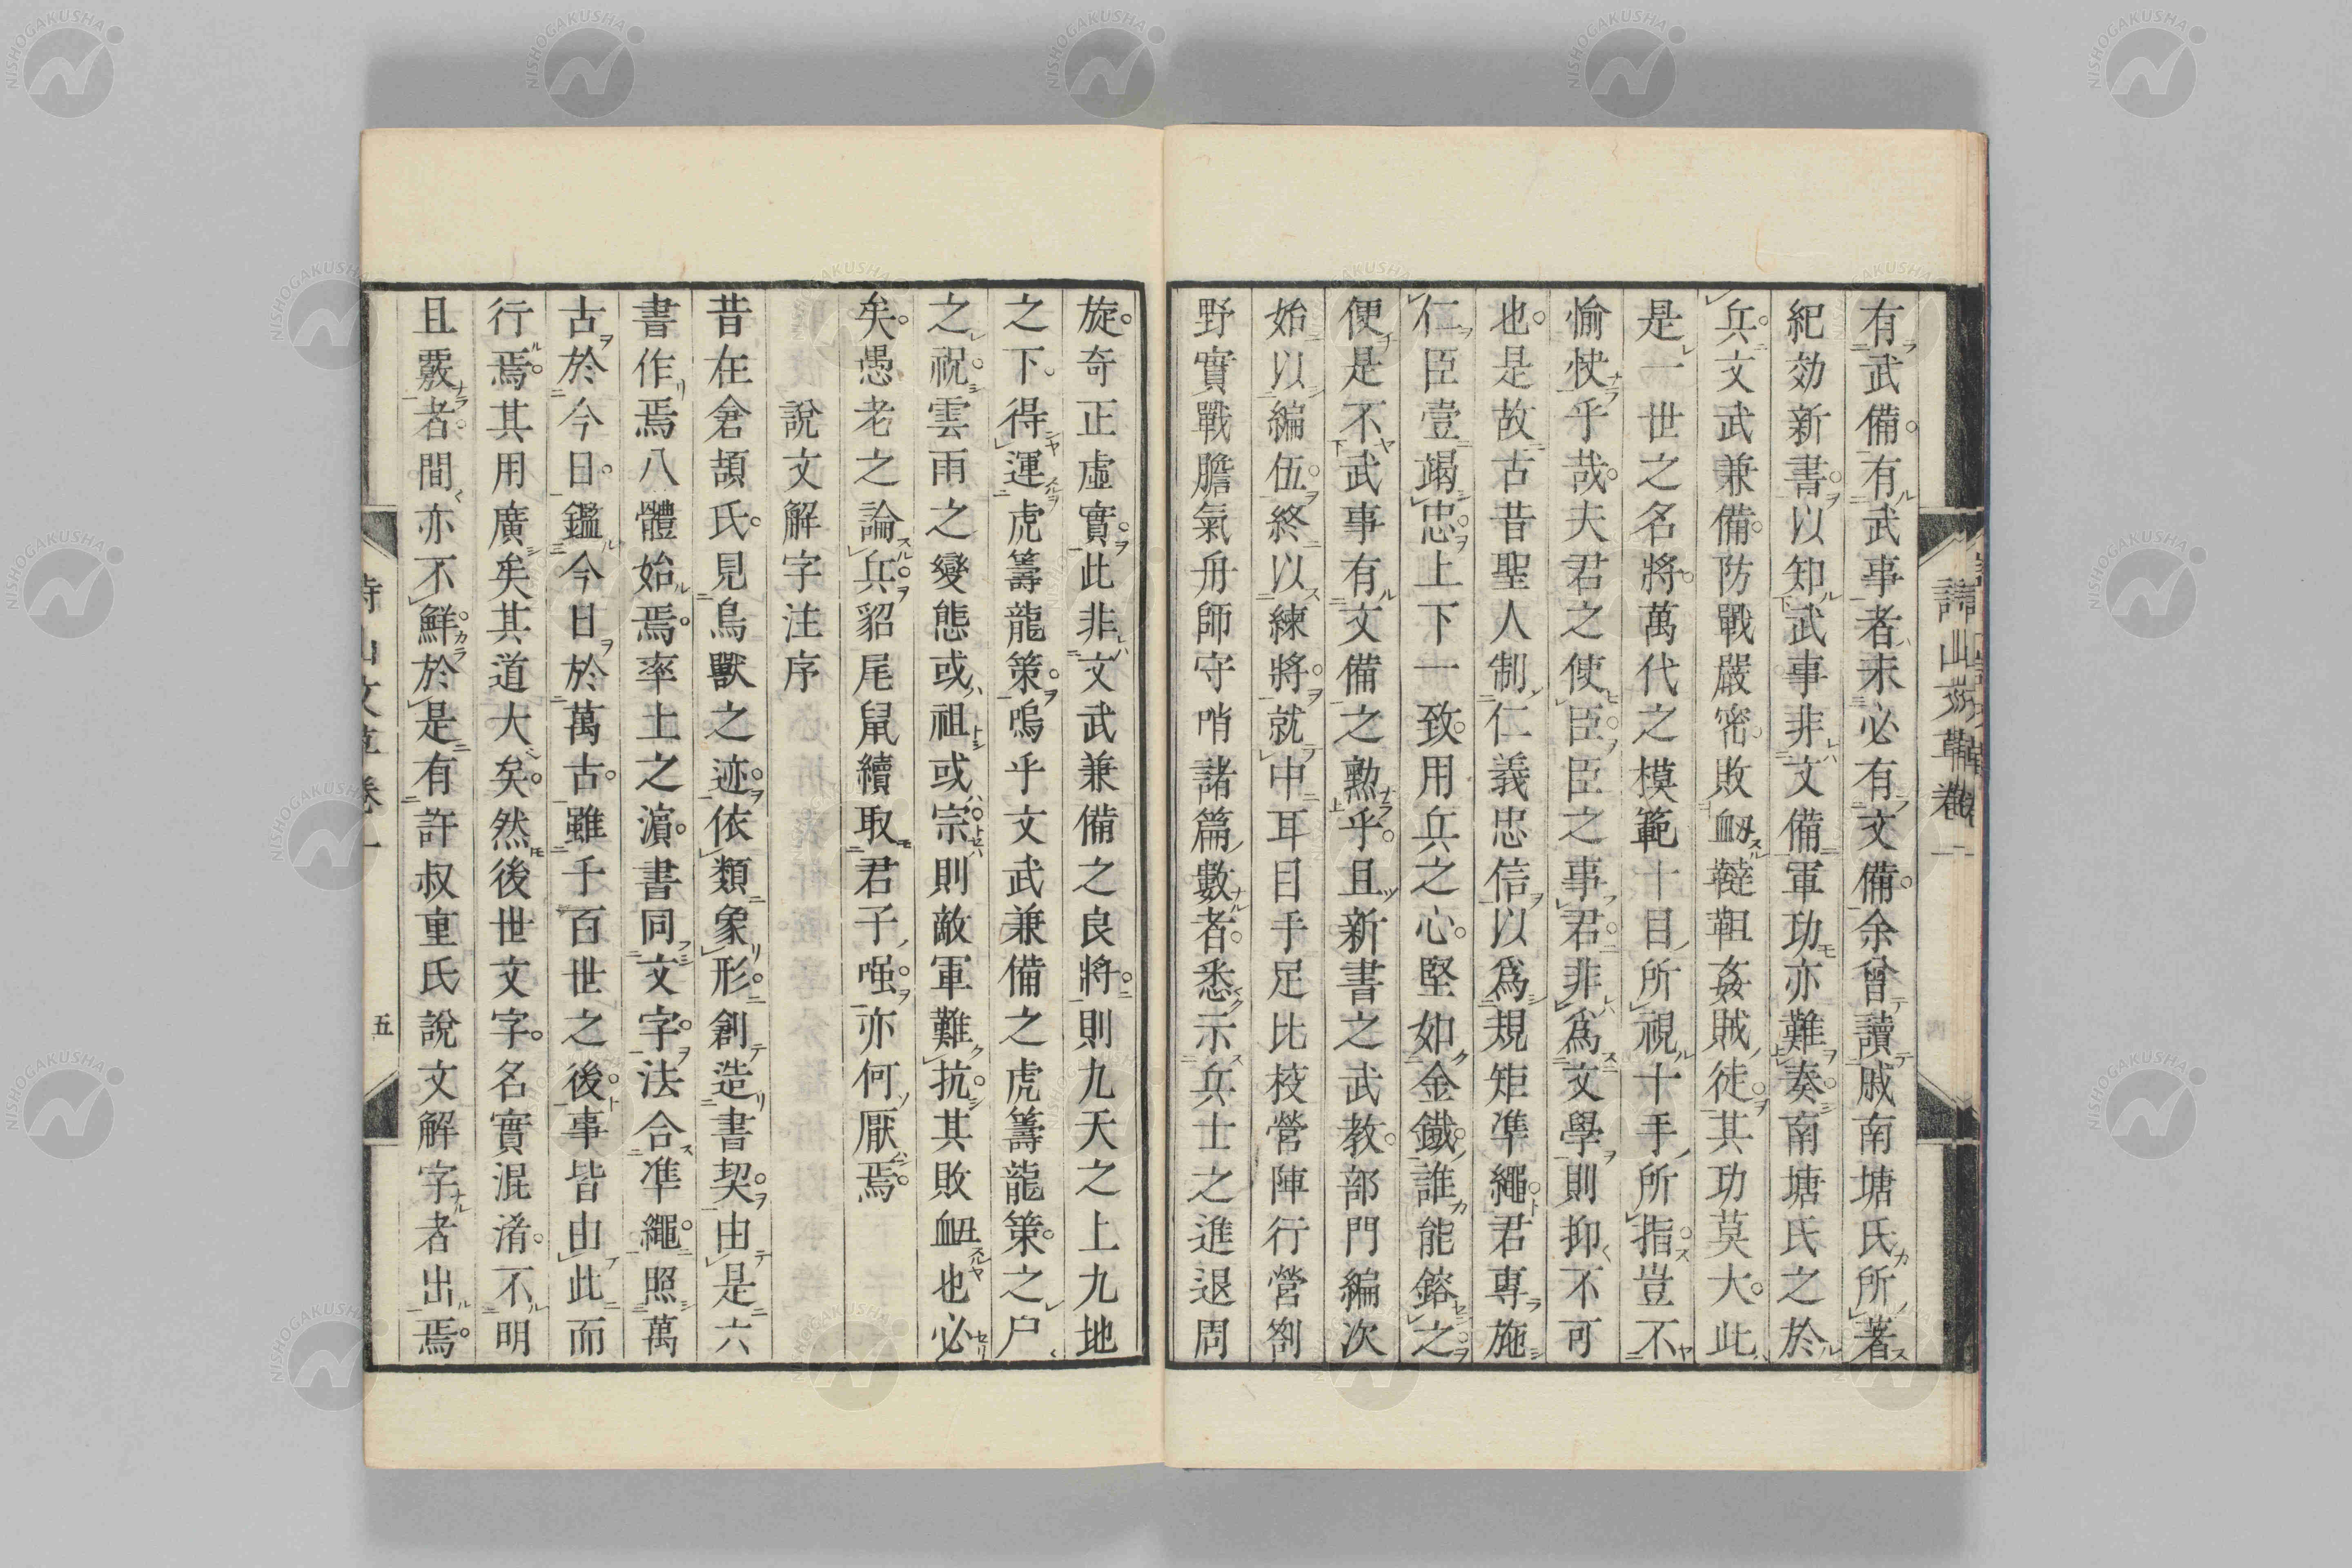 有武備有武事者未必有文備余曾讀戚南塘氏所著
紀効新書以知武事非文備軍功亦難奏南塘氏之於
兵文武兼備防戰嚴密敗衂韃靼姦賊徒其功莫大此
是一世之名將萬代之模範十目所視十手所指豈不
愉快乎哉夫君之使臣臣之事君非爲文學則抑不可
也是故古昔聖人制仁義忠信以爲規矩準繩君專施
仁臣壹竭忠上下一致用兵之心堅如金鐵誰能鎔之
便是不武事有文備之勲乎且新書之武教部門編次
始以編伍終以練將就中耳目手足比校營陣行營劄
野實戰膽氣舟師守哨諸篇數者悉示兵士之進退周
旋奇正虛實此非文武兼備之良將則九天之上九地
之下得運虎籌龍策嗚乎文武兼備之虎籌龍策之尸
之祝雲雨之變態或祖或宗則敵軍難抗其敗衄也必
矣愚老之論兵貂尾鼠續取君子嗤亦何厭焉
說文解字注序
昔在倉頡氏見鳥獸之迹依類象形創造書契由是六
書作焉八體始焉率土之濵書同文字法合準繩照萬
古於今日鑑今日於萬古雖千百世之後事皆由此而
行焉其用廣矣其道大矣然後世文字名實混淆不明
且覈者間亦不鮮於是有許叔重氏說文解字者出焉
詩山文草卷一
五
NISHOGAKUSHA